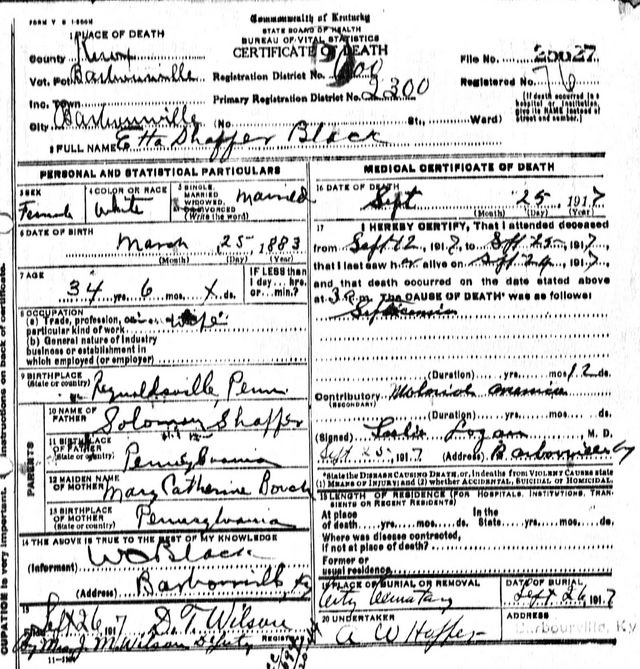 FORM V S 1-500M
Commonwealth of Kentucky
STATE BOARD OF HEALTH
BUREAU OF VITAL STATISTICS
CERTIFICATE OF DEATH
1 PLACE OF DEATH
County Knox
Vot. Pct Barbourville
Inc. Town
City Barbourville (No. St., Ward)
Registration District No.
Primary Registration District No. 2300
File No. 25027
Registered No. 76
(If death occurred in a hospital or institution, give its NAME instead of street and number.)
2 FULL NAME Etta Shaffer Black
PERSONAL AND STATISTICAL PARTICULARS
3 SEX
Female
4 COLOR OR RACE
White
5 SINGLE, MARRIED, WIDOWED, OR DIVORCED (Write the word)
Married
6 DATE OF BIRTH
March 25 1883
(Month) (Day) (Year)
7 AGE
34 yrs. 6 mos. X ds.
IF LESS than 1 day....hrs. or....min.?
8 OCCUPATION
(a) Trade, profession, or particular kind of work wife
(b) General nature of industry business or establishment in which employed (or employer)
9 BIRTHPLACE
(State or country) Reynoldsville, Penn
PARENTS
10 NAME OF FATHER Solomon Shaffer
11 BIRTHPLACE OF FATHER (State or country) Pennsylvania
12 MAIDEN NAME OF MOTHER Mary Catherine Bouch
13 BIRTHPLACE OF MOTHER (State or country) Pennsylvania
14 THE ABOVE IS TRUE TO THE BEST OF MY KNOWLEDGE
(Informant) W O Black
(Address) Barbourville Ky
15
Filed Sept 26 1917 D. T. Wilson
By Mrs. J. M. Wilson Deputy REGISTRAR
11-5184
MEDICAL CERTIFICATE OF DEATH
16 DATE OF DEATH
Sept 25 1917
(Month) (Day) (Year)
17 I HEREBY CERTIFY, That I attended deceased
from Sept 12, 1917, to Sept 25, 1917,
that I last saw her alive on Sept 24, 1917
and that death occurred on the date stated above
at 3 P.m. The CAUSE OF DEATH* was as follows:
Septicemia
(Duration) yrs. mos. 12 ds.
Contributory
(SECONDARY)
(Duration) yrs. mos. ds.
(Signed) Leslie Logan M. D.
Sept 25, 1917 (Address) Barbourville Ky
*State the DISEASE CAUSING DEATH, or, in deaths from VIOLENT CAUSES state (1) MEANS OF INJURY; and (2) whether ACCIDENTAL, SUICIDAL or HOMICIDAL.
18 LENGTH OF RESIDENCE (FOR HOSPITALS, INSTITUTIONS, TRANSIENTS OR RECENT RESIDENTS)
At place of death....yrs....mos....ds. In the State....yrs....mos....ds.
Where was disease contracted, if not at place of death?
Former or usual residence
19 PLACE OF BURIAL OR REMOVAL
City Cemetary
DATE OF BURIAL
Sept 26, 1917
20 UNDERTAKER
A W Hopper
ADDRESS
Barbourville, Ky